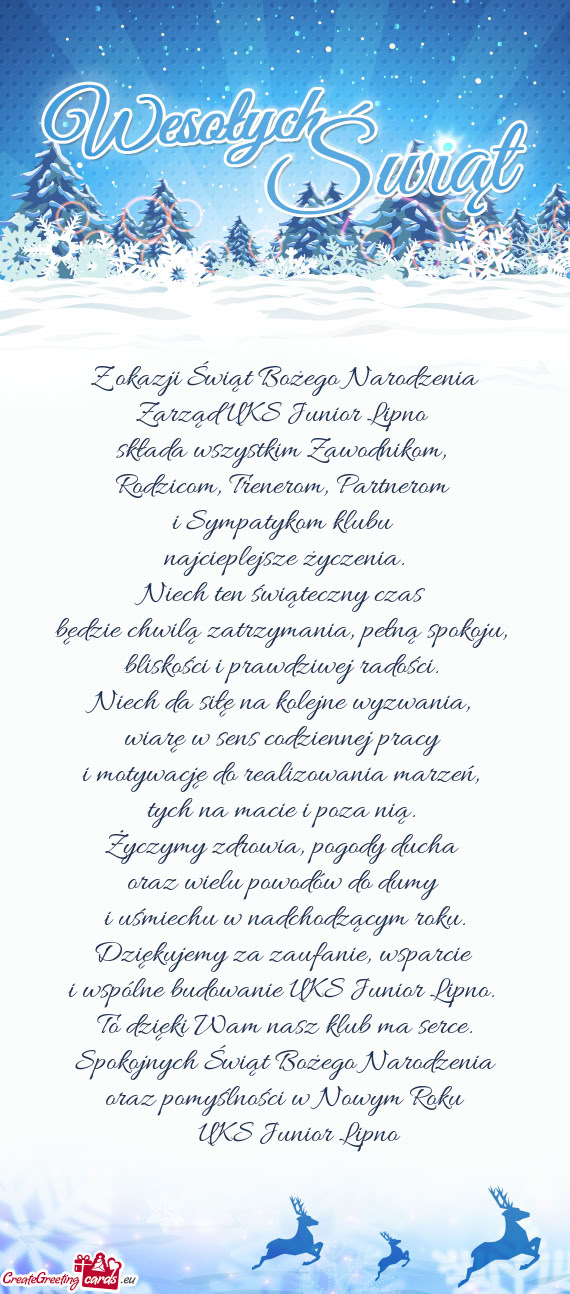 Wesołych
Świąt
Z okazji Świąt Bożego Narodzenia
Zarząd UKS Junior Lipno
składa wszystkim Zawodnikom,
Rodzicom, Trenerom, Partnerom
i Sympatykom klubu
najcieplejsze życzenia.
Niech ten świąteczny czas
będzie chwilą zatrzymania, pełną spokoju,
bliskości i prawdziwej radości.
Niech da siłę na kolejne wyzwania,
wiarę w sens codziennej pracy
i motywację do realizowania marzeń,
tych na macie i poza nią.
Życzymy zdrowia, pogody ducha
oraz wielu powodów do dumy
i uśmiechu w nadchodzącym roku.
Dziękujemy za zaufanie, wsparcie
i wspólne budowanie UKS Junior Lipno.
To dzięki Wam nasz klub ma serce.
Spokojnych Świąt Bożego Narodzenia
oraz pomyślności w Nowym Roku
UKS Junior Lipno
CreateGreetingcards.eu